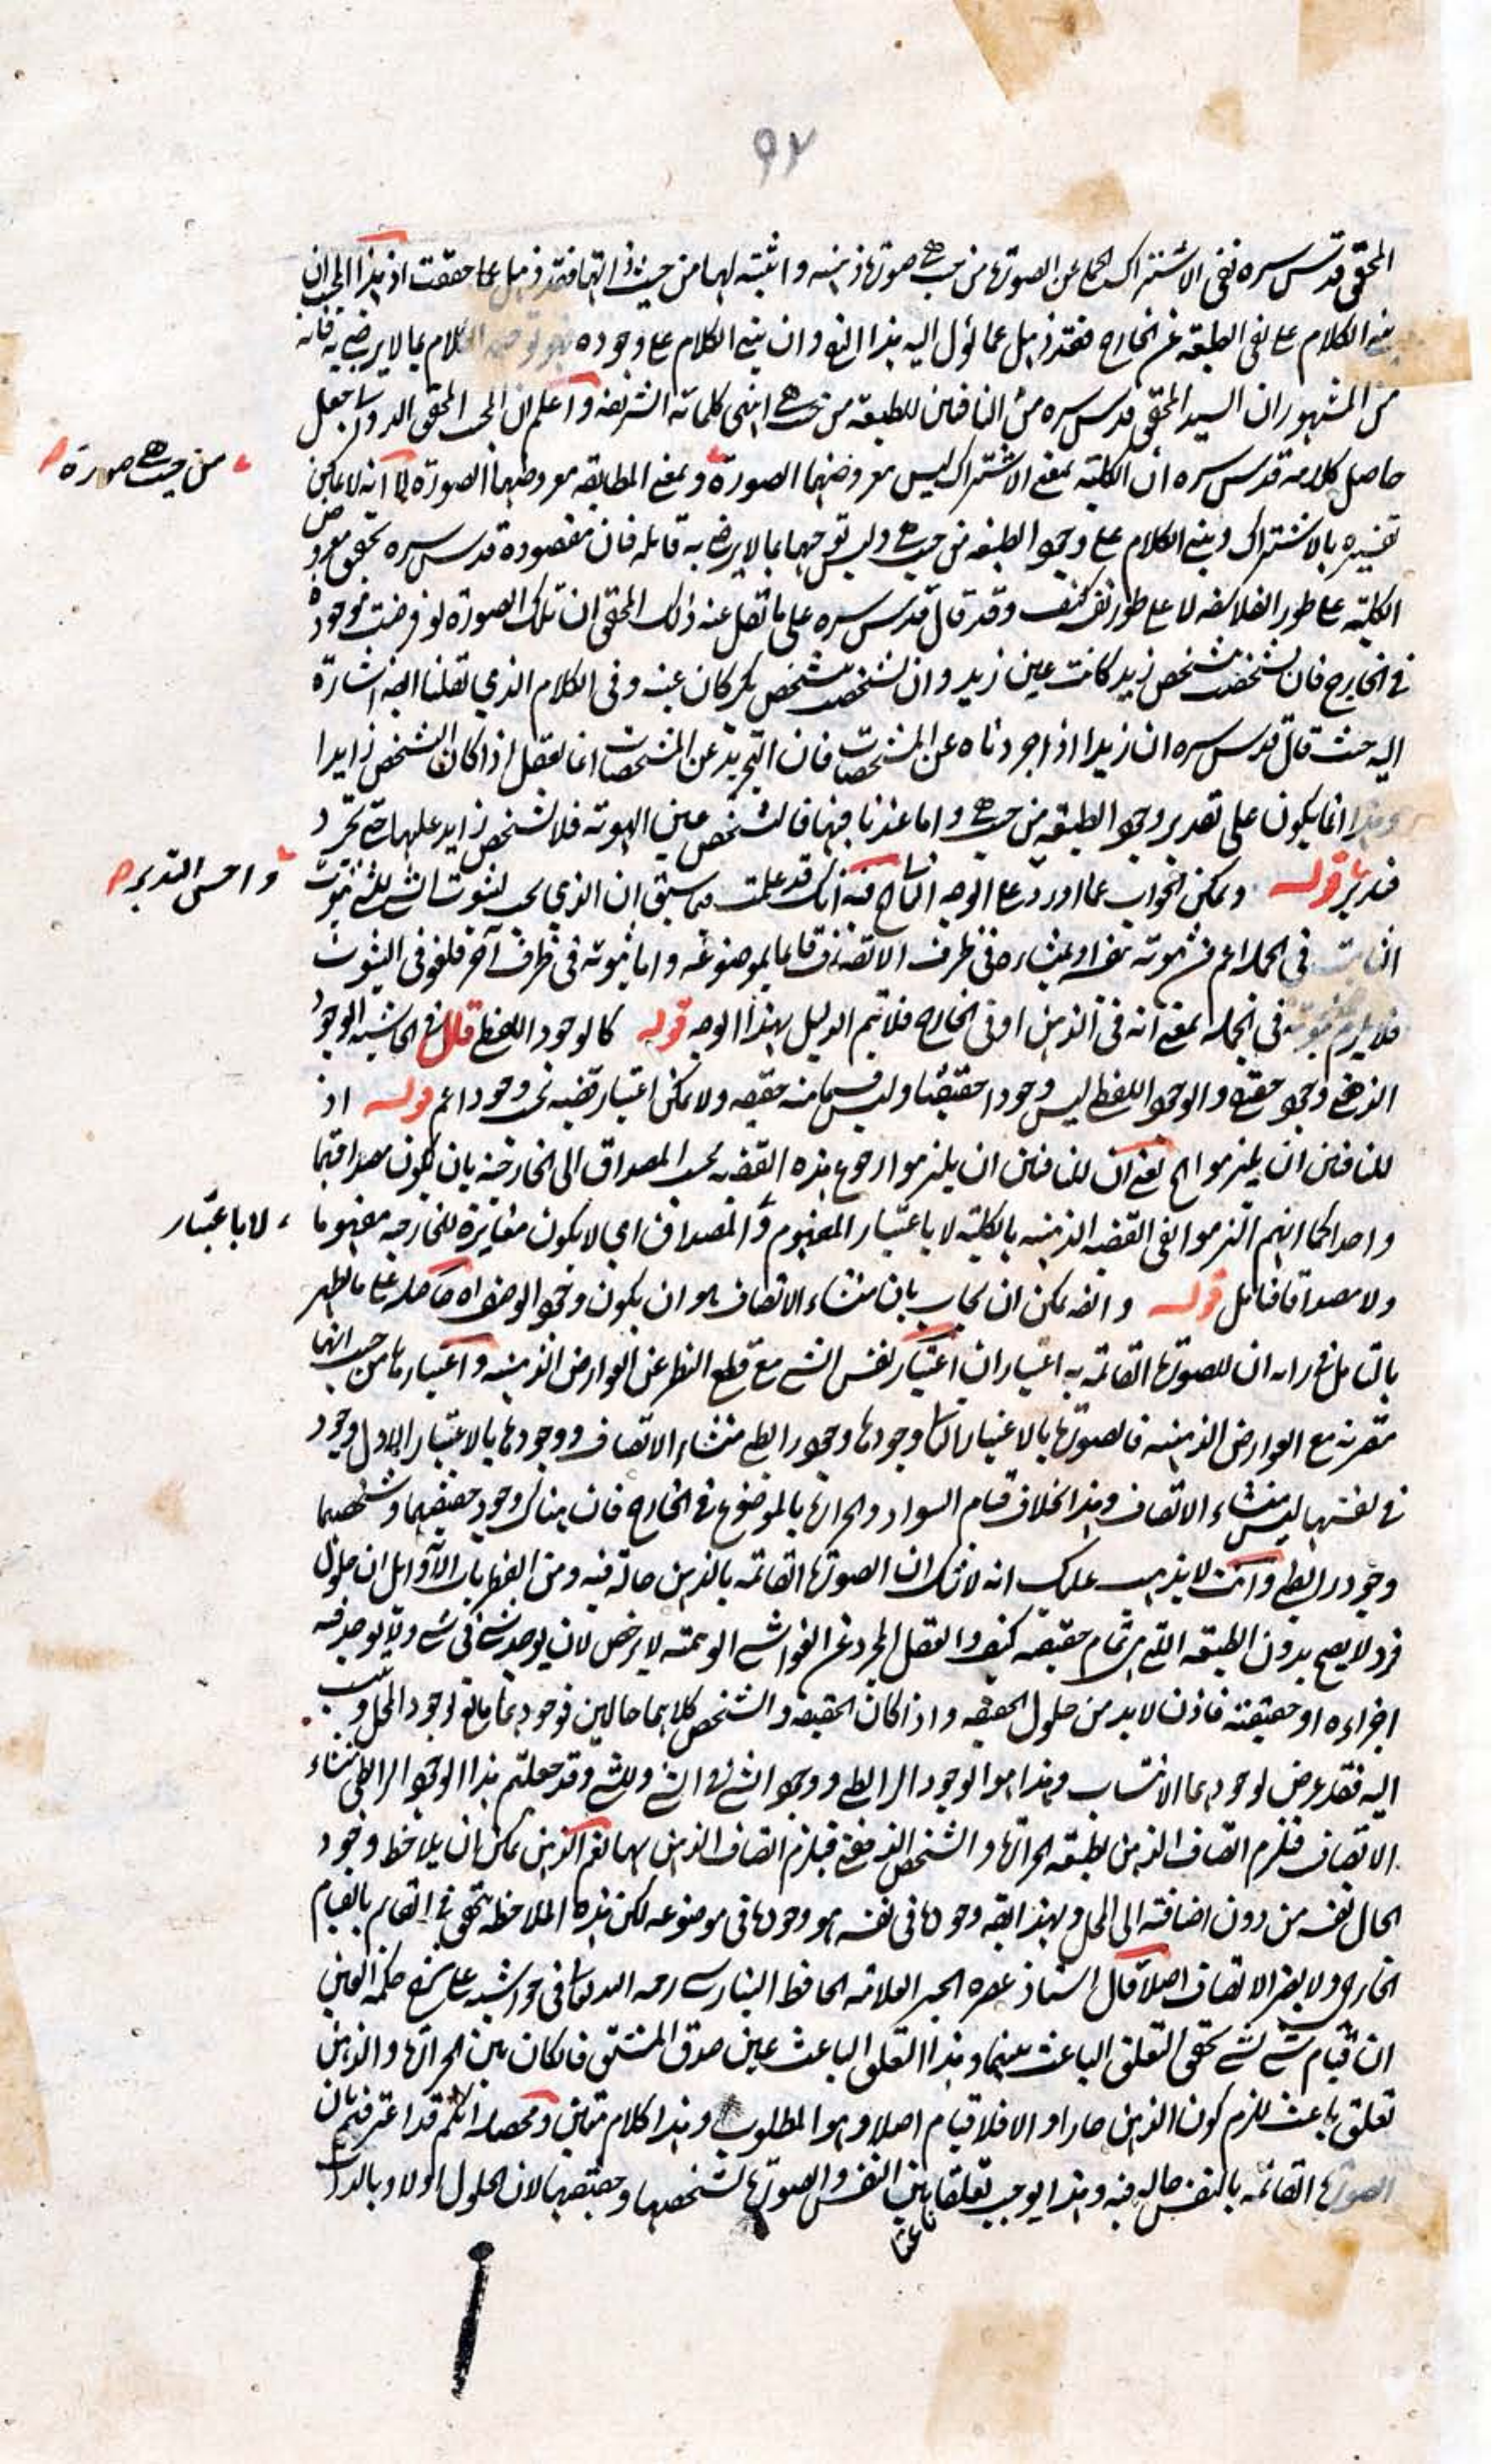 ٩٢
المحقق قدس سره نفى الاشتراك عن الصورة من حيث هي صورة ذهنية واثبته لها من حيث ذاتها فقد ذهل عما حققت اذ هذا الجيب ان
الكلام على نفى الطبيعة عن الخارج فقد ذهل عما نُول اليه هذا النفى وان بنى الكلام على وجوده الكلام بما لا يرضى به فانه
من المشهور ان السيد المحقق قدس سره من النافين للطبيعة من حيث هي كلماته الشريفة واعلم ان المحقق الدواني جعل
حاصل كلامه قدس سره ان الكلية بمعنى الاشتراك ليس معروضها الصورة وبمعنى المطابقة معروضها الصورة الا انه لا يمكن
من حيث هي صورة
تفسيره بالاشتراك وبنى الكلام على وجود الطبيعة من حيث هي وليس توجيها بما لا يرضى به قائله فان مقصوده قدس سره تحقق معروض
الكلية على طور الفلاسفة لا على طور نفسه كيف وقد قال قدس سره على ما نقل عنه ذلك المحقق ان تلك الصورة لو فرضت موجودة
في الخارج فان تشخصت بتشخص زيد كانت عين زيد وان تشخصت بتشخص بكر كان عينه وفى الكلام الذي نقلنا ايضا اشارة
اليه حيث قال قدس سره ان زيدا اذا جردناه عن المشخصات فان التجريد عن المشخصات انما يعقل اذا كان التشخص زايدا
وهذا انما يكون على تقدير وجود الطبيعة من حيث هي واما عند نافيها فالتشخص عين الهوية فلا تشخص زايد عليها حتى تجرد
فتدبر قوله ويمكن الجواب عما اورد على الوجه الثاني فيه انك قد علمت فيما سبق ان الذي يجب لثبوت الشيء للشيء ثبوت
واحسن التدبر
الثابت في الجملة اعم من ثبوته بنفسه او بمنشاءه في ظرف الاتصاف قائما بموضوعه واما ثبوته فى ظرف آخر فلغو فى الثبوت
فلا يلزم ثبوته في الجملة بمعنى انه فى الذهن او فى الخارج فلا يتم الدليل بهذا الوجه قوله كالوجود اللفظي قال في الحاشية الوجود
الذهني وجود حقيقة والوجود اللفظي ليس وجودا حقيقيا وليس قسما منه حقيقة ولا يمكن اعتبار قضية بحسب وجود اعم قوله اذ
للنافين ان يلتزموا الخ يعني ان للنافين ان يلتزموا رجوع هذه القضية بحسب المصداق الى الخارجية بان يكون مصداقهما
واحدا كما انهم التزموا نفى القضية الذهنية بالكلية لا باعتبار المفهوم والمصداق اي لا يكون مغايرة للخارجية مفهوما
لا باعتبار
ولا مصداقا فتامل قوله وايضا يمكن ان يجاب بان منشاء الاتصاف هو ان يكون وجود الوصف اه حاصله على ما يظهر
بالتامل في رايه ان للصورة القائمة به اعتباران اعتبار نفس الشيء مع قطع النظر عن العوارض الذهنية واعتبارها من حيث انها
مقترنة مع العوارض الذهنية فالصورة بالاعتبار الثاني وجودها وجود رابطي منشاء الاتصاف ووجودها بالاعتبار الاول وجود
في نفسها ليس منشاء الاتصاف وهذا بخلاف قيام السواد والحرارة بالموضوع في الخارج فان هناك وجود حقيقتهما وشخصهما
وجود رابطي وانت لا يذهب عليك انه لا شك ان الصورة القائمة بالذهن حالة فيه ومن الفطريات الاوايل ان حلول
فرد لا يصح بدون الطبيعة التي هي تمام حقيقته كيف والعقل المجرد عن الغواشي الوهمية لا يرخص لان يوجد شيء في شيء ولا يوجد فيه
اجزاءه او حقيقته فاذن لا بد من حلول الحقيقة واذا كان الحقيقة والتشخص كلاهما حالين فوجودهما تابع لوجود المحل ونسب
اليه فقد عرض لوجودهما الانتساب وهذا هو الوجود الرابطي ووجود الشيء في الشيء وللشيء وقد جعلتم هذا الوجود الرابطي منشاء
الاتصاف فلزم اتصاف الذهن بطبيعة الحرارة والتشخص الذهني فيلزم اتصاف الذهن بهما نعم الذهن يمكن ان يلاحظ وجود
الحال نفسه من دون اضافته الى المحل وبهذا ايضا وجودها فى نفسه هو وجودها فى موضوعه لكن هذه الملاحظة يتحقق في القائم بالقيام
الخارجي ولا يضر الاتصاف اصلا قال استاذ عصره الحبر العلامة الحافظ البنارسي رحمه الله تعالى في حواشيه على شرح حكمة العين
ان قيام شيء لشيء يحقق التعلق الباعث بينهما وهذا التعلق الباعث عين صدق المشتق فان كان بين الحرارة والذهن
تعلق باعث للزم كون الذهن حارا والا فلا قيام اصلا وهو المطلوب وهذا كلام متين ومحصله انكم قد اعترفتم بان
الصورة القائمة بالنفس حالة فيه وهذا يوجب تعلقا بين النفس والصورة بتشخصها وحقيقتها لان الحلول اولا وبالذات
باعثا